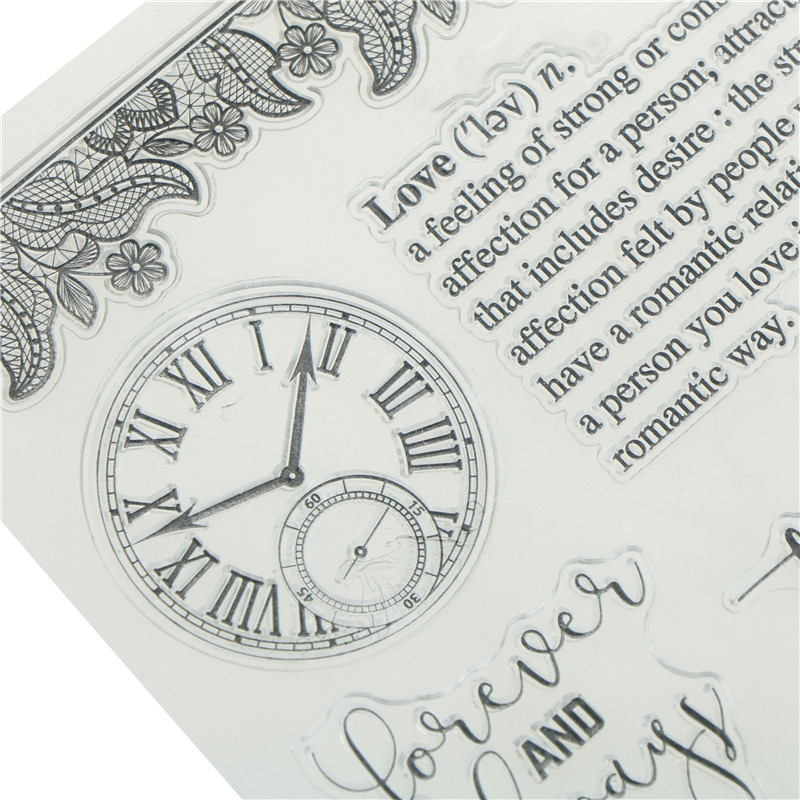 Love ('ləv) n.
a feeling of strong or cons
affection for a person; attract
that includes desire : the str
affection felt by people
have a romantic relati
a person you love
romantic way.
XII
I
II
III
IIII
V
VII
VIII
IX
X
XI
60
15
30
45
forever
AND